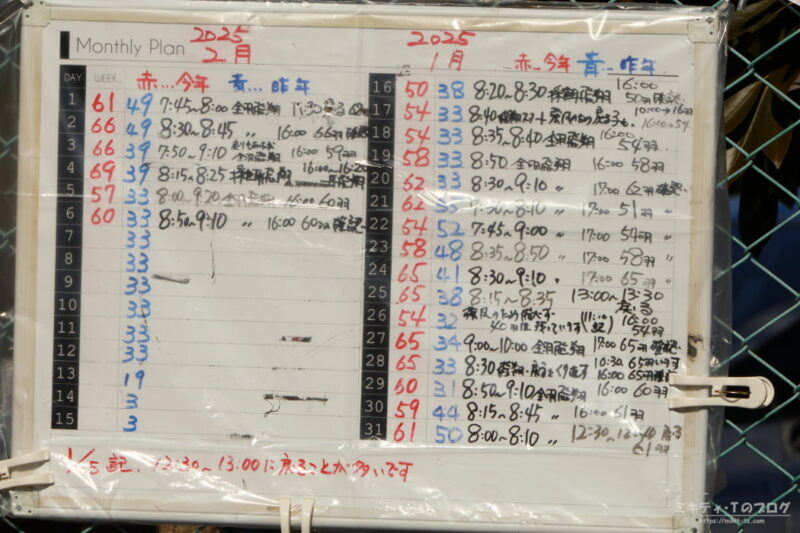 Monthly Plan 2025
2月
DAY WEEK. 赤…今年 青…昨年
1 61 49 7:45~8:00 全羽飛翔
2 66 49 8:30~8:45 〃 16:00 66羽確認
3 66 39 7:50~9:10 全羽飛翔 16:00 59羽
4 69 39 8:15~8:25 飛翔 16:00~16:20
5 57 33 8:00~9:20 全羽飛翔 16:00 60羽
6 60 33 8:50~9:10 〃 16:00 60羽確認
7 33
8 33
9 33
10 33
11 33
12 33
13 19
14 3
15 3
2025
1月 赤…今年 青…昨年
16 50 38 8:20~8:30 飛翔 16:00 50羽確認
17 54 33 8:40 10:00→16:00→54
18 54 33 8:35~8:40 全羽飛翔 16:00 54羽
19 58 33 8:50 全羽飛翔 16:00 58羽
20 62 33 8:30~9:10 〃 17:00 62羽確認
21 62 8:10 〃 17:00 51羽 〃
22 54 52 7:45~9:00 〃 17:00 54羽 〃
23 58 48 8:35~8:50 〃 17:00 58羽 〃
24 65 41 8:30~9:10 〃 17:00 65羽 〃
25 65 38 8:15~8:35 13:00~13:30 戻る
26 54 32 強風のため飛ばず 40羽位残っています 16:00 54羽
27 65 34 9:00~10:00 全羽飛翔 17:00 65羽確認
28 65 33 8:30 飛翔 10:30 65羽います 16:00 65羽
29 60 31 8:50~9:10 全羽飛翔 16:00 60羽
30 59 44 8:15~8:45 〃 16:00 61羽
31 61 50 8:00~8:10 〃 12:30~12:40 戻る 61羽
1/5 記、12:30~13:00に戻ることが多いです
ミキティ・Tのブログ